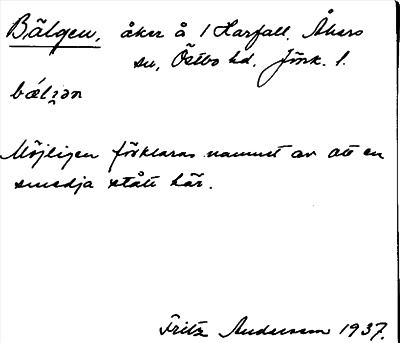 Bälgen, åker å 1 Harfall. Åkers
sn, Östbo hd. Jönk. l.
bǽlʒən
Möjligen förklaras namnet av att en
smedja stått här.
Fritz Andersson 1937.